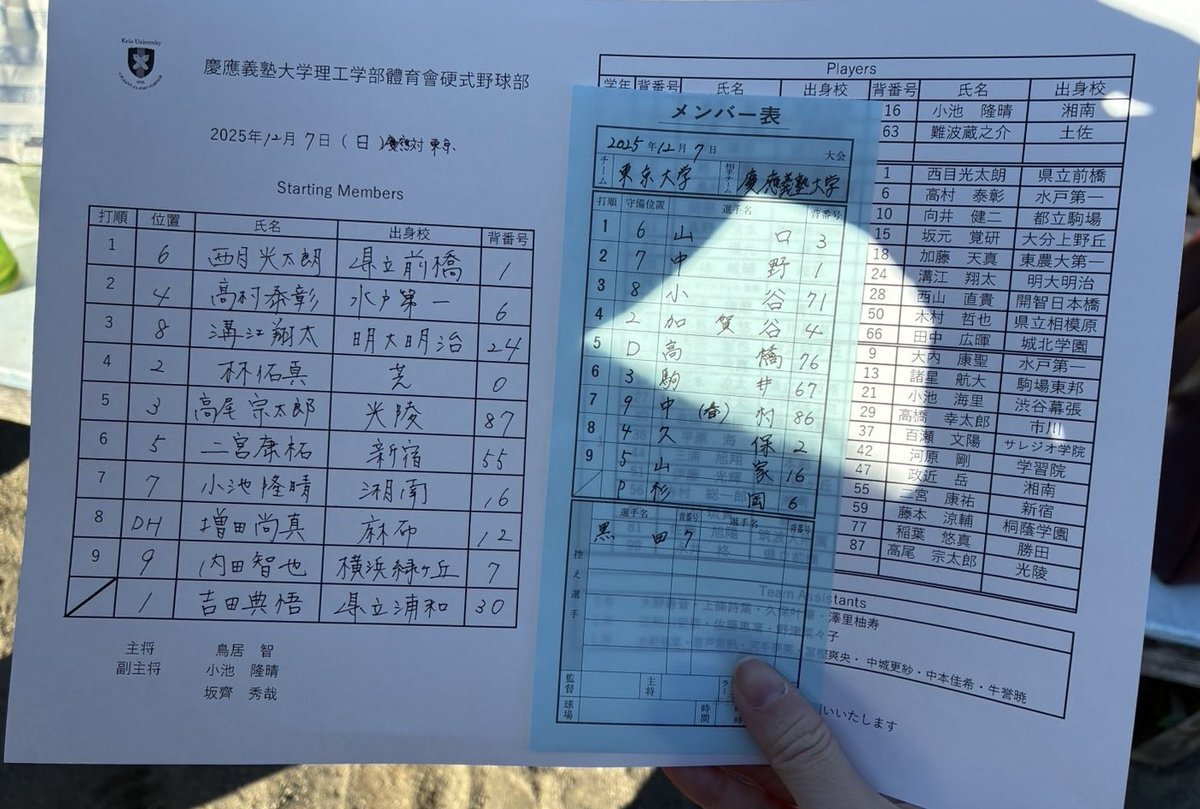 Keio University
慶應義塾大学理工学部體育會硬式野球部
2025年12月7日(日)慶應対東京
Starting Members
打順 位置 氏名 出身校 背番号
1 6 西目光太朗 県立前橋 1
2 4 高村泰彰 水戸第一 6
3 8 溝江翔太 明大明治 24
4 2 林佑真 芝 0
5 3 高尾宗太郎 光陵 87
6 5 二宮康祐 新宿 55
7 7 小池隆晴 湘南 16
8 DH 増田尚真 麻布 12
9 9 内田智也 横浜緑ヶ丘 7
1 吉田典悟 県立浦和 30
主将 鳥居 智
副主将 小池 隆晴
坂齊 秀哉
メンバー表
2025年12月7日 大会
チーム 東京大学 相手チーム 慶應義塾大学
打順 守備位置 選手名 背番号
1 6 山口 3
2 7 中野 1
3 8 小谷 71
4 2 加賀谷 4
5 D 高橋 76
6 3 駒井 67
7 9 中(春)村 86
8 4 久保 2
9 5 山家 16
P 杉岡 6
選手名 背番号 選手名 背番号
控え選手
黒田 7
監督 主将
球場 時間 時
Players
学年 背番号 氏名 出身校 背番号 氏名 出身校
16 小池 隆晴 湘南
63 難波蔵之介 土佐
1 西目光太朗 県立前橋
6 高村 泰彰 水戸第一
10 向井 健二 都立駒場
15 坂元 覚研 大分上野丘
18 加藤 天真 東農大第一
24 溝江 翔太 明大明治
28 西山 直貴 開智日本橋
50 木村 哲也 県立相模原
66 田中 広暉 城北学園
9 大内 康聖 水戸第一
13 諸星 航大 駒場東邦
21 小池 海里 渋谷幕張
29 高橋 幸太郎 市川
37 百瀬 文陽 サレジオ学院
42 河原 剛 学習院
47 政近 岳 湘南
55 二宮 康祐 新宿
59 藤本 涼輔 桐蔭学園
77 稲葉 悠真 勝田
87 高尾 宗太郎 光陵
Team Assistants
澤里柚寿
子
爽央・中城更紗・中本佳希・牛誉暁
いいたします